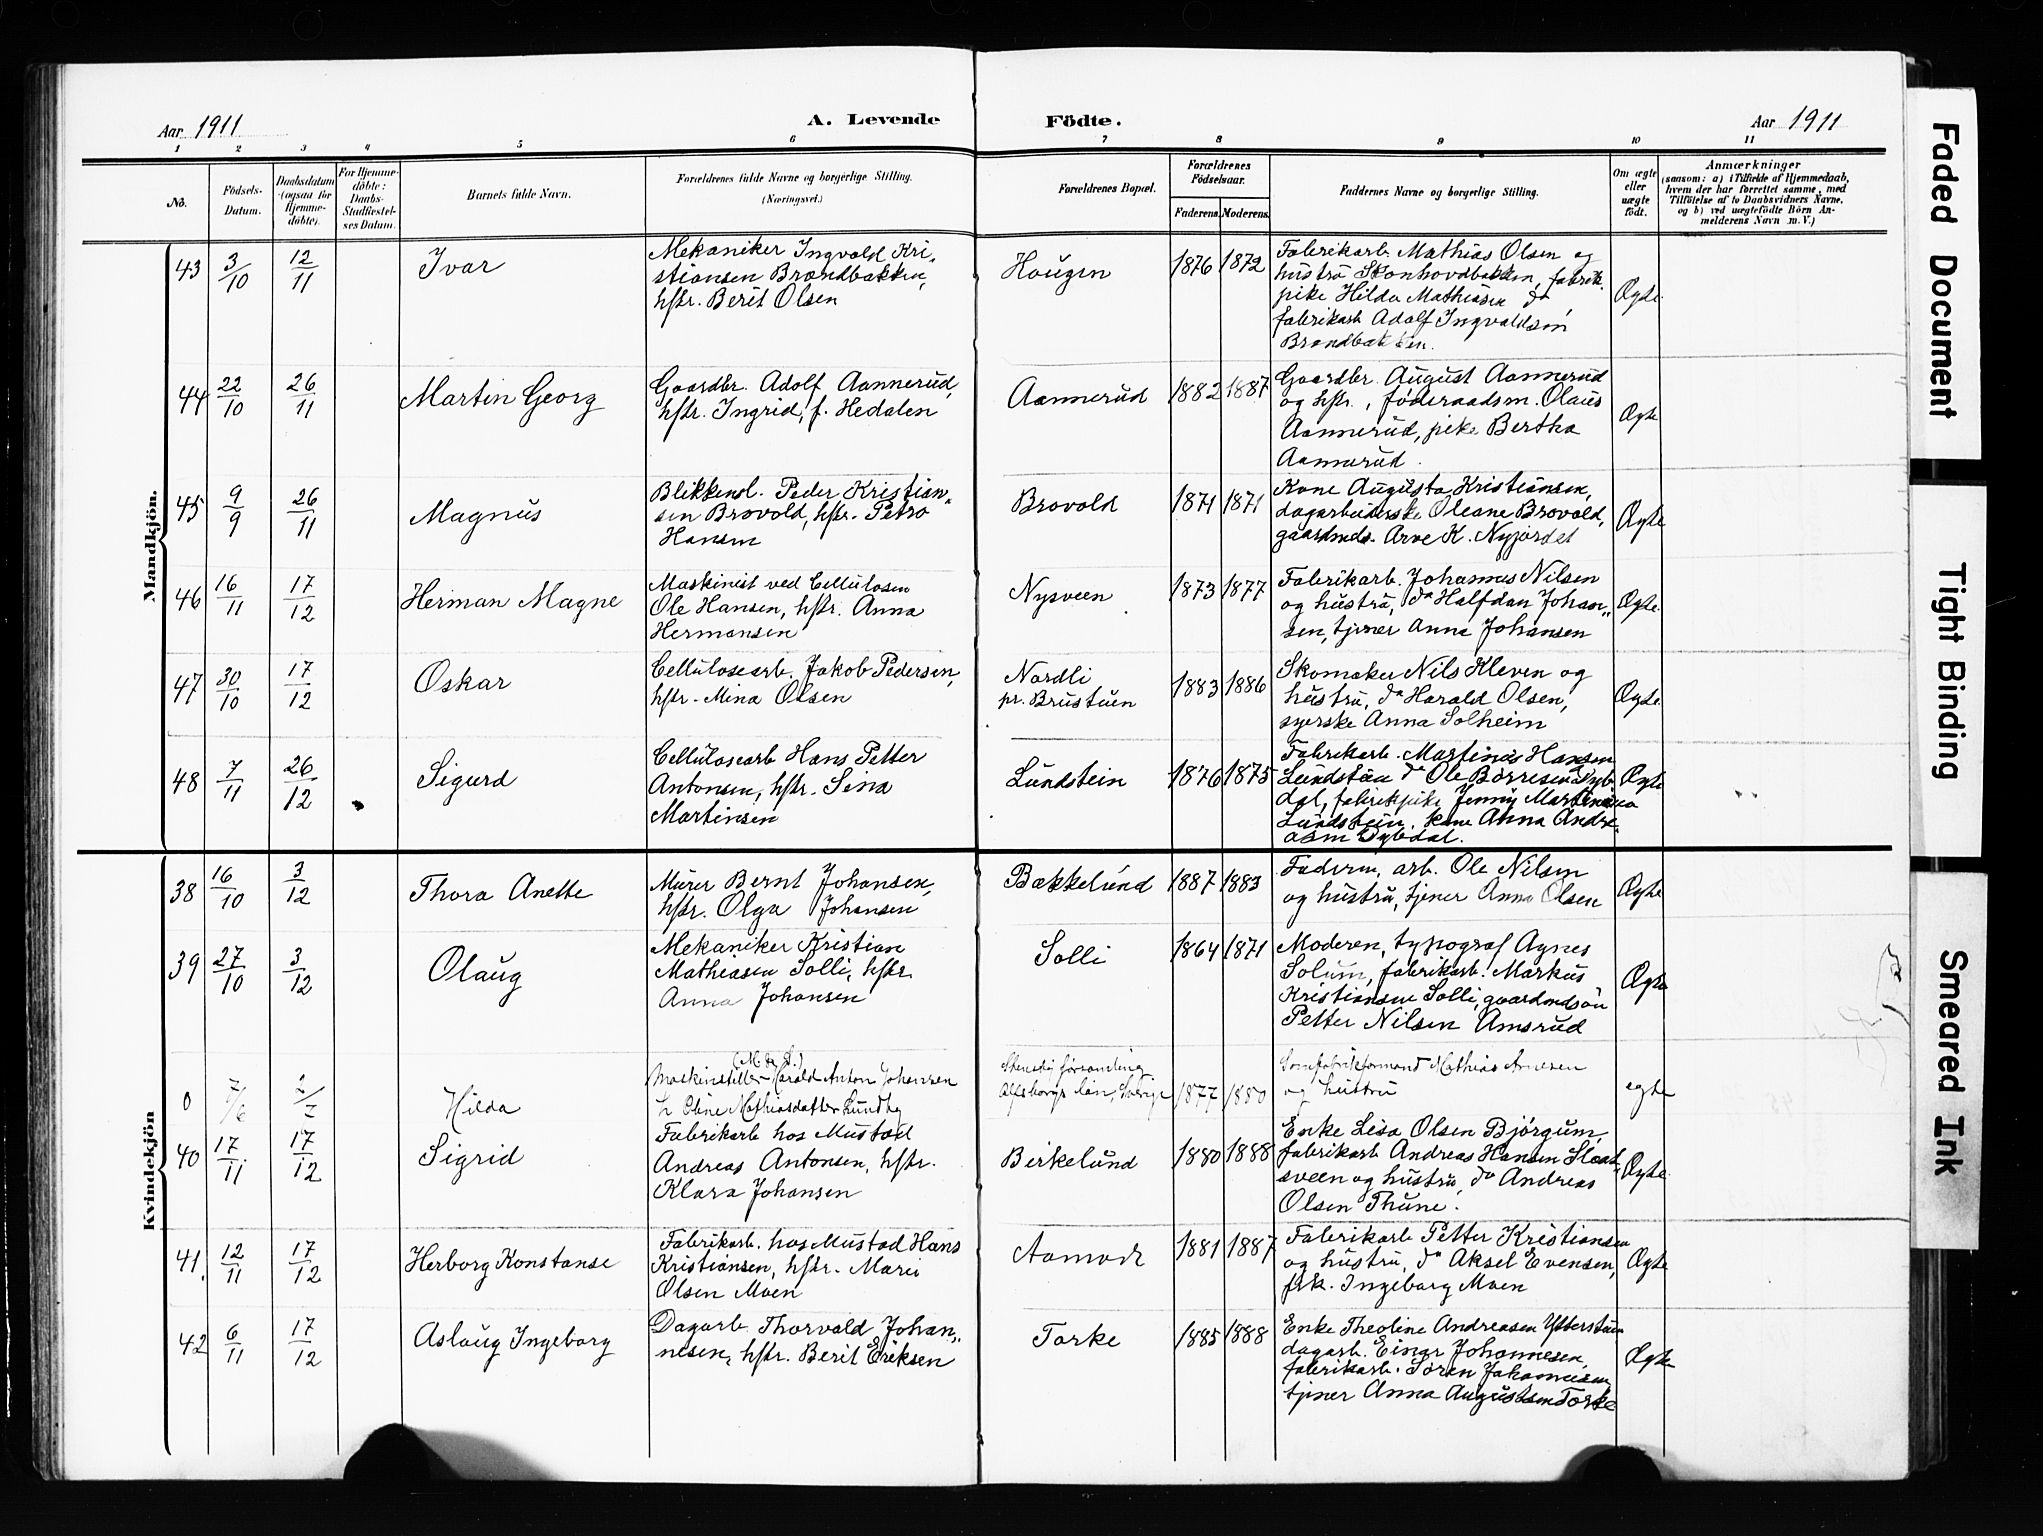 Aar 1911
A. Levende
Födte.
Aar 1911
1 2 3 4 5 6 7 8 9 10 11
No.
Födsels-
Datum.
Daabsdatum
(ogsaa for
Hjemme-
döbte).
For Hjemme-
döbte:
Daabs-
Stadfæstel-
ses Datum.
Barnets fulde Navn.
Forældrenes fulde Navne og borgerlige Stilling.
(Næringsvei.)
Forældrenes Bopæl.
Forældrenes
Födselsaar.
Faderens.
Moderens.
Faddernes Navne og borgerlige Stilling.
Om ægte
eller
uægte
födt.
Anmærkninger
(saasom: a) i Tilfælde af Hjemmedaab,
hvem der har forrettet samme, med
Tilföielse af to Daabsvidners Navne,
og b) ved uægtefödte Börn An-
melderens Navn m. V.)
Mandkjön.
43
3/10
12/11
Ivar
Mekaniker Ingvald Kri-
stiansen Brændbakken,
hstr. Berit Olsen
Haugen
1876 1872
Fabrikarb. Mathias Olsen og
hustru Skonhovdbakken, fabrik.
pike Hilda Mathiasen do
fabrikarb Adolf Ingvaldsen
Brændbakken.
Ægte.
44
22/10
26/11
Martin Georg
Gaardbr. Adolf Aannerud,
hstr. Ingrid, f. Hedalen
Aannerud
1882 1887
Gaardbr. August Aannerud
og hstr., føderaadsm. Olaus
Aannerud, pike Bertha
Aannerud.
Ægte
45
9/9
26/11
Magnus
Blikkensl. Peder Kristian-
sen Brovold, hstr. Petra
Hansen
Brovold
1871 1871
Kone Augusta Kristiansen,
dagarbeiderske Oleane Brovold,
gaardmds. Arve K. Nyjordet
Ægte
46
16/11
17/12
Herman Magne
Maskinist ved Cellulosen
Ole Hansen, hstr. Anna
Hermansen
Nysveen
1873 1877
Fabrikarb. Johannes Nilsen
og hustru, do Halfdan Johan-
sen, tjener Anna Johansen
Ægte.
47
30/10
17/12
Oskar
Cellulosearb. Jakob Pedersen,
hstr. Mina Olsen
Nordli
pr. Brustuen
1883 1886
Skomaker Nils Kleven og
hustru, do Harald Olsen,
syerske Anna Solheim
Ægte.
48
7/11
26/12
Sigurd
Cellulosearb Hans Petter
Antonsen, hstr. Sina
Martinsen
Lundstein
1876 1875
Fabrikarb. Martinus Hansen
Lundstein do Ole Børresen Dyb-
dal, fabrikpike Jenny Martinsen
Lundstein, kone Anna Andre-
asen Dybdal.
Ægte
Kvindekjön
38
16/10
3/12
Thora Anette
Murer Bernt Johansen,
hstr. Olga Johansen
Bækkelund
1887 1883
Faderen, arb. Ole Nilsen
og hustru, tjener Anna Olsen
Ægte
39
27/10
3/12
Olaug
Mekaniker Kristian
Mathiasen Solli, hstr.
Anna Johansen
Solli
1864 1871
Moderen, typograf Agnes
Solum, fabrikarb. Markus
Kristiansen Solli, gaardmdsøn
Petter Nilsen Amsrud
Ægte
0
7/6
2/7
Hilda
Maskinstiller Harald Anton Johansen
h. Oline Mathiasdatter Lundby
Alfsborgs län, Sverige
1877 1880
Mathias Arnesen
og hustru
egte
40
17/11
17/12
Sigrid
Fabrikarb hos Mustad
Andreas Antonsen, hstr.
Klara Johansen
Birkelund
1880 1888
Enke Lisa Olsen Bjørgum,
fabrikarb Andreas Hansen Slaat-
sveen og hustru, do Andreas
Olsen Thune.
Ægte.
41.
12/11
17/12
Herborg Konstanse
Fabrikarb. hos Mustad Hans
Kristiansen, hstr. Marie
Olsen Moen
Aamodt
1881 1887
Fabrikarb Petter Kristiansen
og hustru, do Aksel Evensen,
frk. Ingeborg Moen
Ægte
42
6/11
17/12
Aslaug Ingeborg
Dagarb. Thorvald Johan-
nesen, hstr. Berit Eriksen
Torke
1885 1888
Enke Theoline Andreasen Ytterstuen
dagarb. Einar Johannesen,
fabrikarb. Søren Johannesen
tjener Anna Augustsen Torke
Ægte
Faded Document
Tight Binding
Smeared Ink